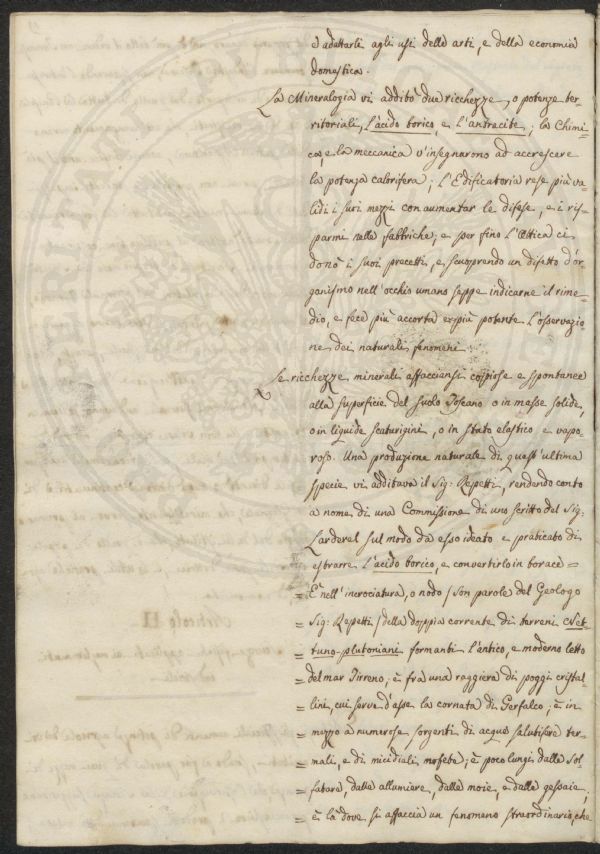 ed adattarli agli usi delle arti, e della economia
domestica.
La Mineralogia vi additò due ricchezze, o potenze ter-
ritoriali, l'acido borico, e l'antracite; la Chimi-
ca, e la meccanica v'insegnarono ad accrescere
la potenza calorifera; l'Edificatoria rese più va-
lidi i suoi mezzi con aumentar le difese, e i ris-
parmi nelle fabbriche; e per fino l'Ottica ci
donò i suoi precetti, e scuoprendo un difetto d'or-
ganismo nell'occhio umano seppe indicarne il rime-
dio, e fece più accorta e più potente l'osservazio-
ne dei naturali fenomeni.
Le ricchezze minerali affacciansi copiose e spontanee
alla superficie del suolo Toscano o in masse solide,
o in liquide scaturigini, o in stato elastico e vapo-
roso. Una produzione naturale di quest'ultima
specie vi additava il Sig: Repetti, rendendo conto
a nome di una Commissione di uno scritto del Sig:
Larderel sul modo da esso ideato e praticato di
estrarre l'acido borico, e convertirlo in borace =
= È nell'incrociatura, o nodo (son parole del Geologo
= Sig: Repetti) della doppia corrente di terreni Net-
= tuno-plutoniani formanti l'antico, e moderno letto
= del mar Tirreno; è fra una raggiera di poggi cristal-
= lini, cui serve d'asse la cornata di Gerfalco, è in
= mezzo a numerose sorgenti di acque salutifere ter-
= mali, e di micidiali mofete; è poco lungi dalle sol-
= fatare, dalle allumiere, dalle moie, e dalle gessaie;
= è là dove si affaccia un fenomeno straordinario, che